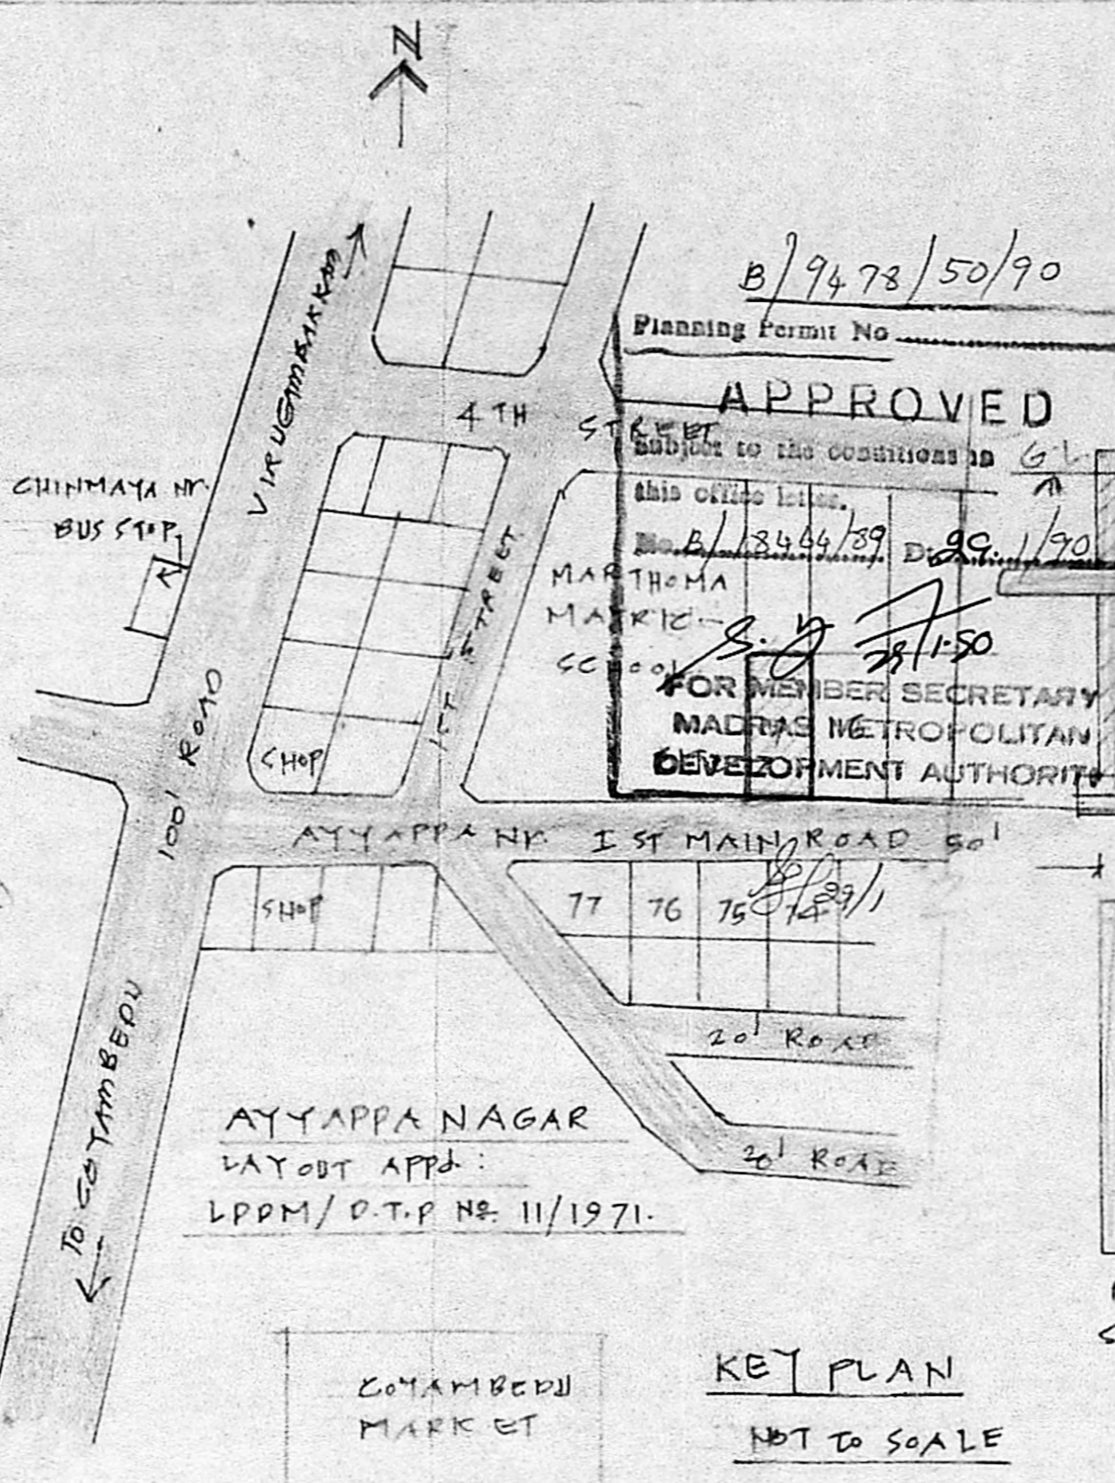 N
B/9478/50/90
Planning Permit No
APPROVED
Subject to the conditions in
this office letter.
No. B/18444/89 Dt. 29.1/90
FOR MEMBER SECRETARY
MADRAS METROPOLITAN
DEVELOPMENT AUTHORITY
VIRUGAMBAKKAM
4TH STREET
CHINMAYA Nr.
BUS STOP
MARTHOMA
MATRIC
SCHOOL
1ST STREET
SHOP
100' ROAD
AYYAPPA Nr. I ST MAIN ROAD 50'
SHOP
77 76 75 74
29/1
20' ROAD
20' ROAD
TO COYAMBEDU
AYYAPPA NAGAR
LAYOUT APPd:
LPDM/D.T.P No 11/1971.
COYAMBEDU
MARKET
KEY PLAN
NOT TO SCALE